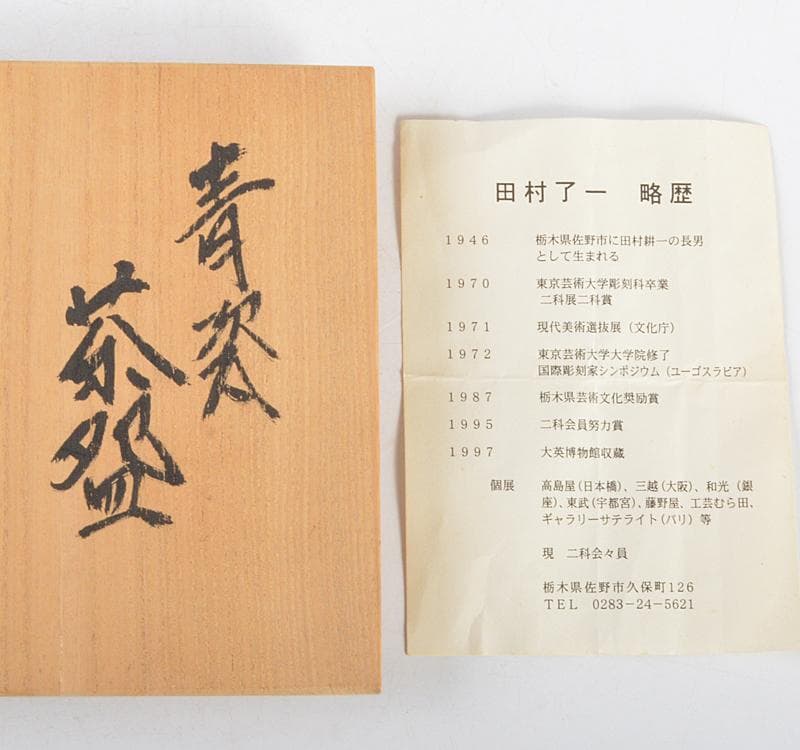 青瓷
茶盌
田村了一 略歴
1946 栃木県佐野市に田村耕一の長男
として生まれる
1970 東京芸術大学彫刻科卒業
二科展二科賞
1971 現代美術選抜展(文化庁)
1972 東京芸術大学大学院修了
国際彫刻家シンポジウム(ユーゴスラビア)
1987 栃木県芸術文化奨励賞
1995 二科会員努力賞
1997 大英博物館収蔵
個展 高島屋(日本橋)、三越(大阪)、和光(銀
座)、東武(宇都宮)、藤野屋、工芸むら田、
ギャラリーサテライト(パリ)等
現 二科会々員
栃木県佐野市久保町126
TEL 0283-24-5621